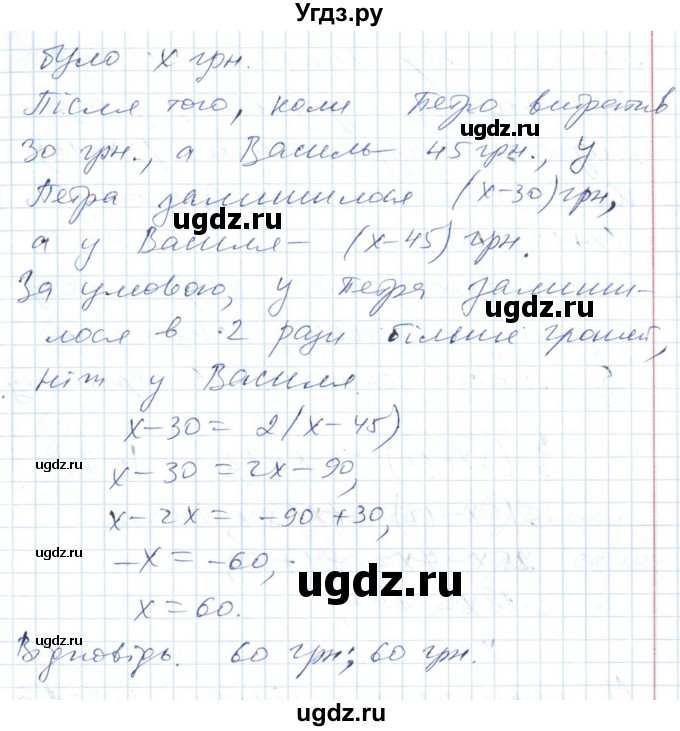 Угдз.ру
було х грн.
Після того, коли Петро витратив
30 грн., а Василь – 45 грн., у
Петра залишилося (х-30) грн,
а у Василя – (х-45) грн.
За умовою, у Петра залиши-
лося в 2 рази більше грошей,
ніж у Василя.
х-30 = 2(х-45)
х-30 = 2х-90,
х-2х = -90+30,
-х = -60,
х = 60.
Відповідь. 60 грн; 60 грн.
ugdz.ru
ugdz.ru
ugdz.ru
ugdz.ru
ugdz.ru
ugdz.ru
ugdz.ru
ugdz.ru
ugdz.ru
ugdz.ru